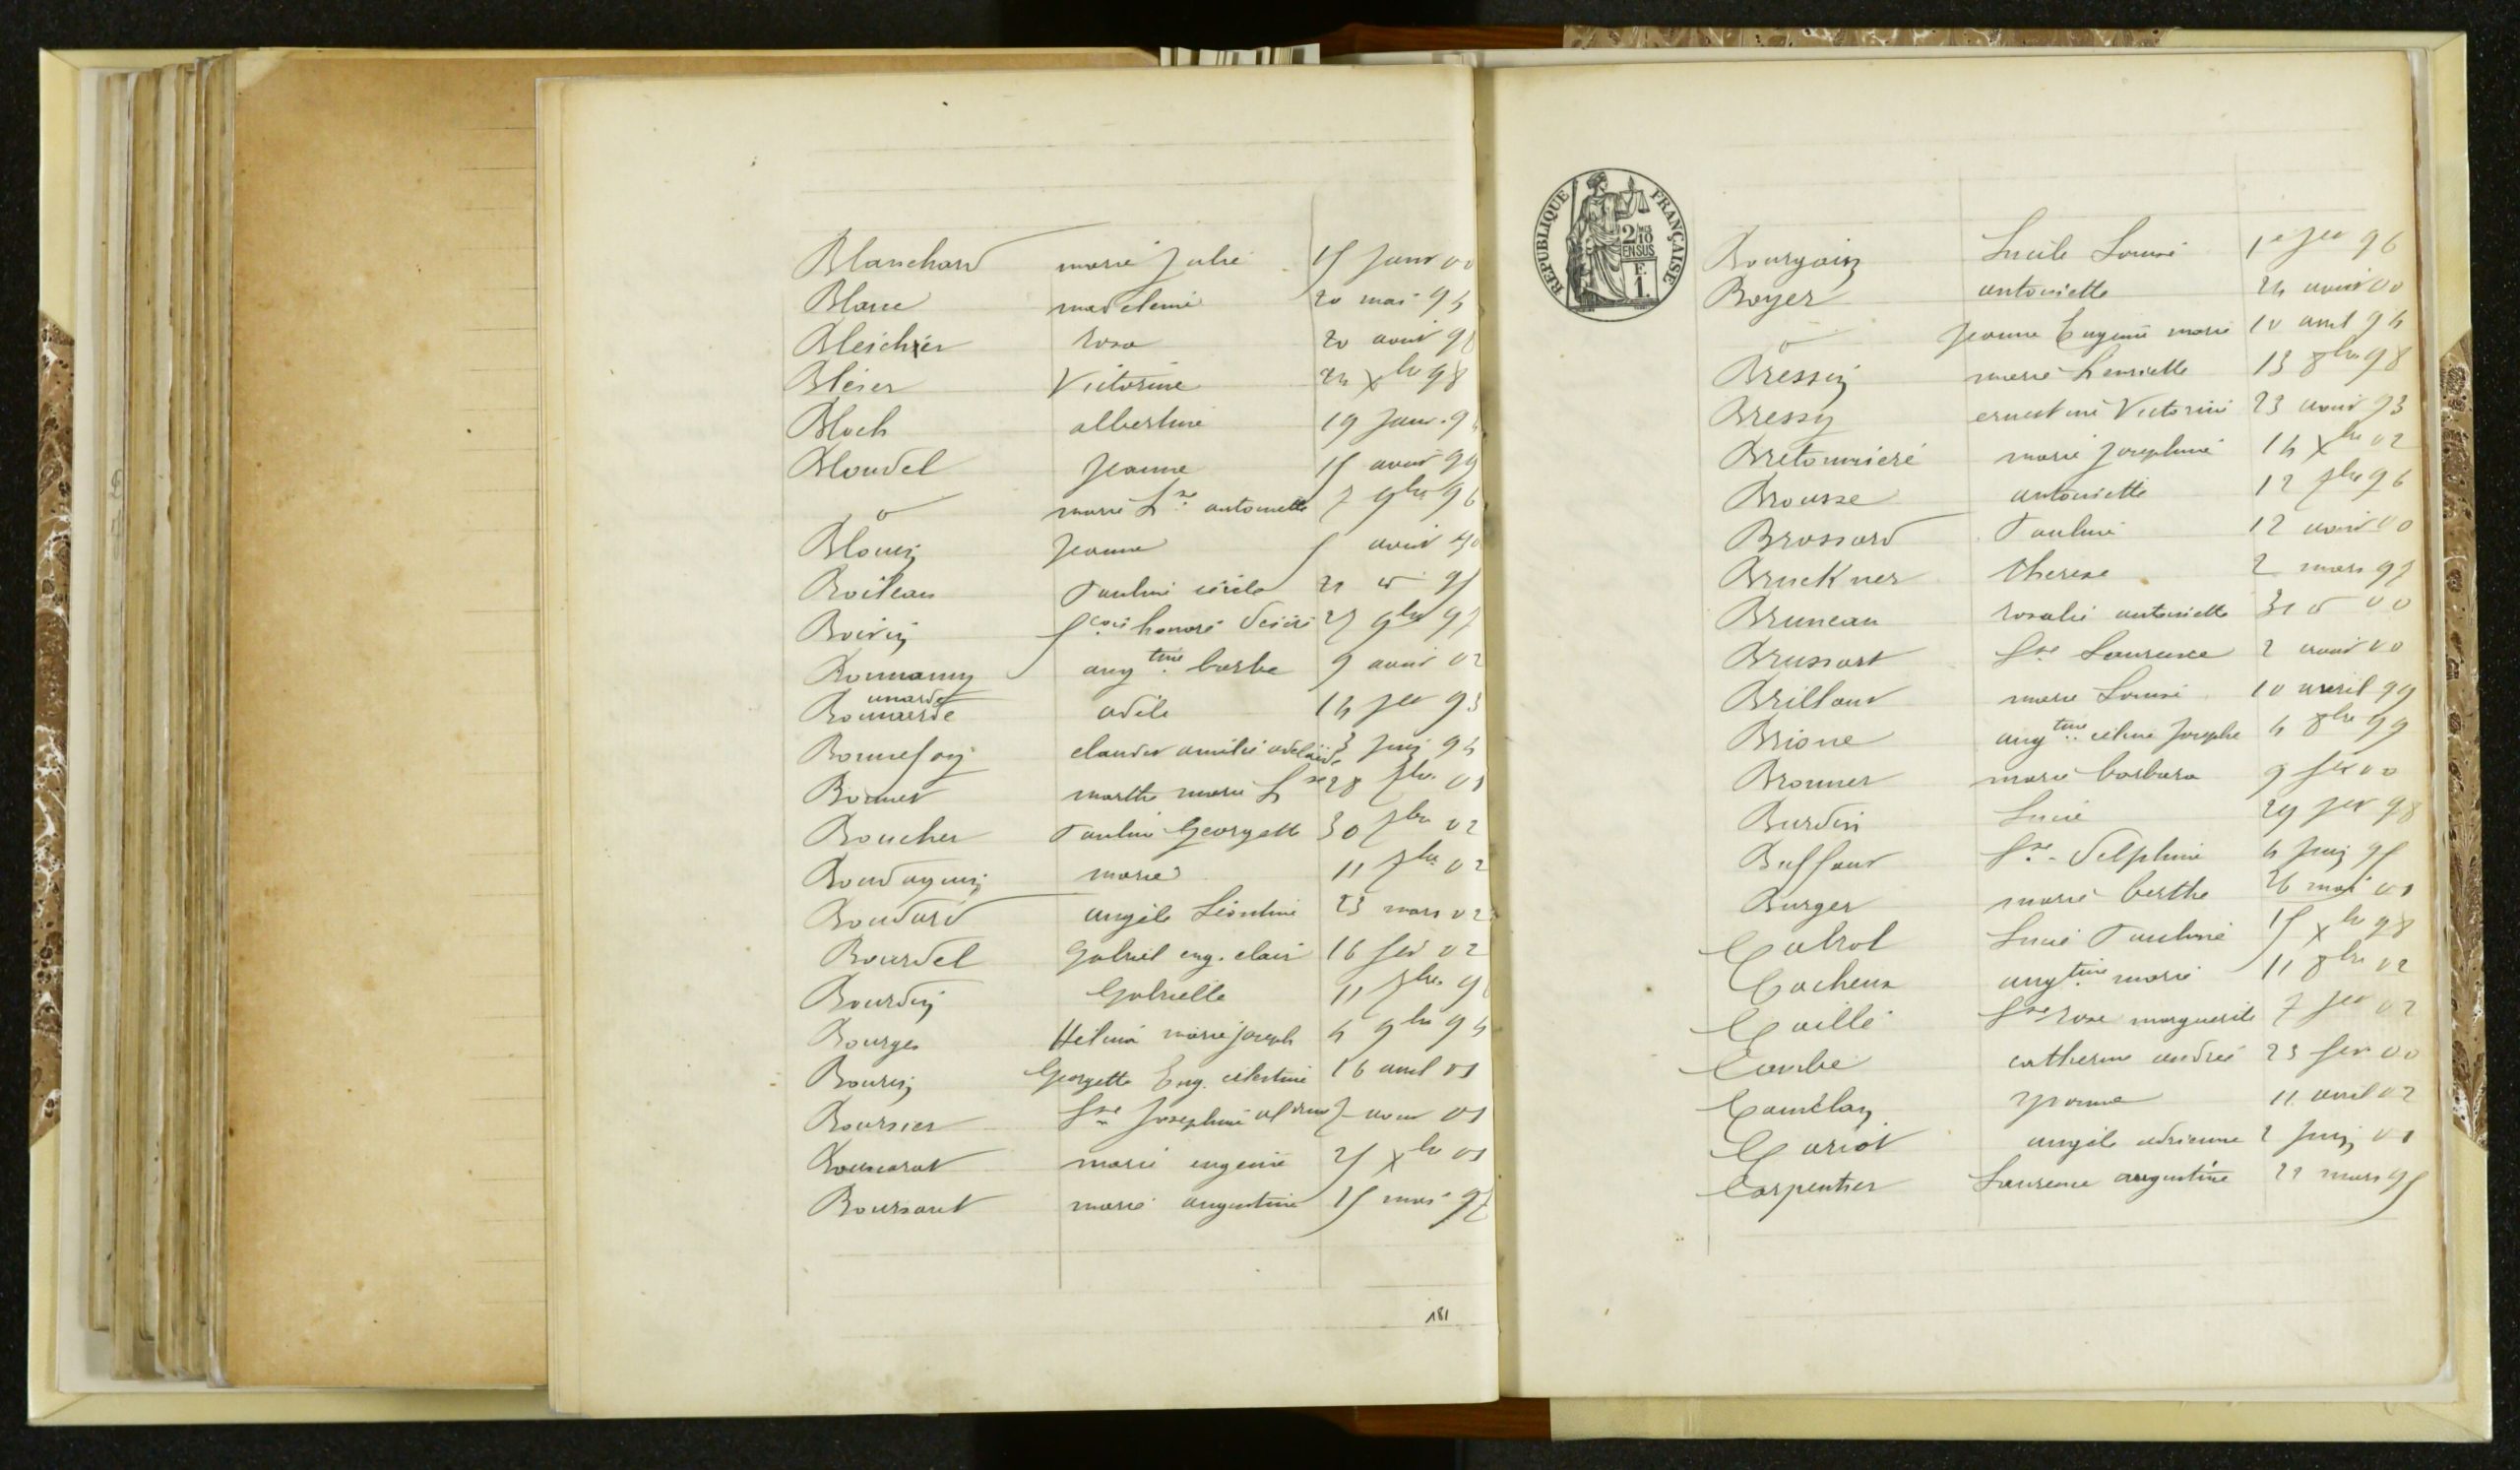 Blanchard marie Julie 15 Janv 00
Blanc madeleine 20 mai 94
Bleichner rosa 20 aout 9
Bléser Victorine 24 Xbre 98
Bloch albertine 19 Janv. 9
Blondel Jeanne 15 aout 99
d° marie Lse antoinette 7 9bre 96
Blouin Jeanne 5 aout 90
Boileau Pauline cécile 21 d° 95
Boivin fcois honoré désiré 27 9bre 97
aug tine barbe 9 aout 02
Bonnarde adèle 14 Jer 93
Bonnefoy claudis amélie adelaïde 3 Juin 94
Bonnet marthe marie Lse 28 7bre 01
Boucher Pauline Georgette 30 7bre 02
marie 11 7bre 02
Boudard angèle Léontine 23 mars 02
Bourdel Gabriel eug. clair 16 fev 02
Bourdin Gabrielle 11 7bre 9
Bourges Hélina marie joseph 4 9bre 94
Bourin Georgette Eug. célestine 16 avril 01
Boursier fse Joséphine 7 aout 01
marie eugenie 25 Xbre 01
Boursaut marie augustine 15 mai 97
181
REPUBLIQUE FRANÇAISE
2/10 EN SUS
F.
1.
Bourgoin Lucile Louise 1er Jer 96
Boyer antoinette 24 aout 00
d° Jeanne Eugenie marie 10 avril 94
Bressin marie henriette 13 8bre 98
Bressy ernestine Victorine 23 aout 93
Bretonnière marie Josephine 14 Xbre 02
Brousse antoinette 12 7bre 96
Brossard Pauline 12 aout 00
Bruckner therese 2 mars 97
Bruneau rosalie antoinette 31 d° 00
Brussart fse Laurence 2 aout 00
Brillaud marie Louise 10 avril 99
Brione aug tine céline josephe 4 8bre 99
Bronner marie barbara 9 fev 00
Burdin Lucie 29 Jer 98
Buffaut fse Delphine 4 Juin 95
Burger marie berthe 26 mai 01
Cabrol Lucie Pauline 15 Xbre 98
Cacheux aug tine marie 11 8bre 02
Caillé fse rose marguerite 7 Jer 02
Cambe catherine andrée 23 fev 00
Yvonne 11 avril 02
Cariot angèle adrienne 2 Juin 01
Carpentier Laurence augustine 22 mars 95